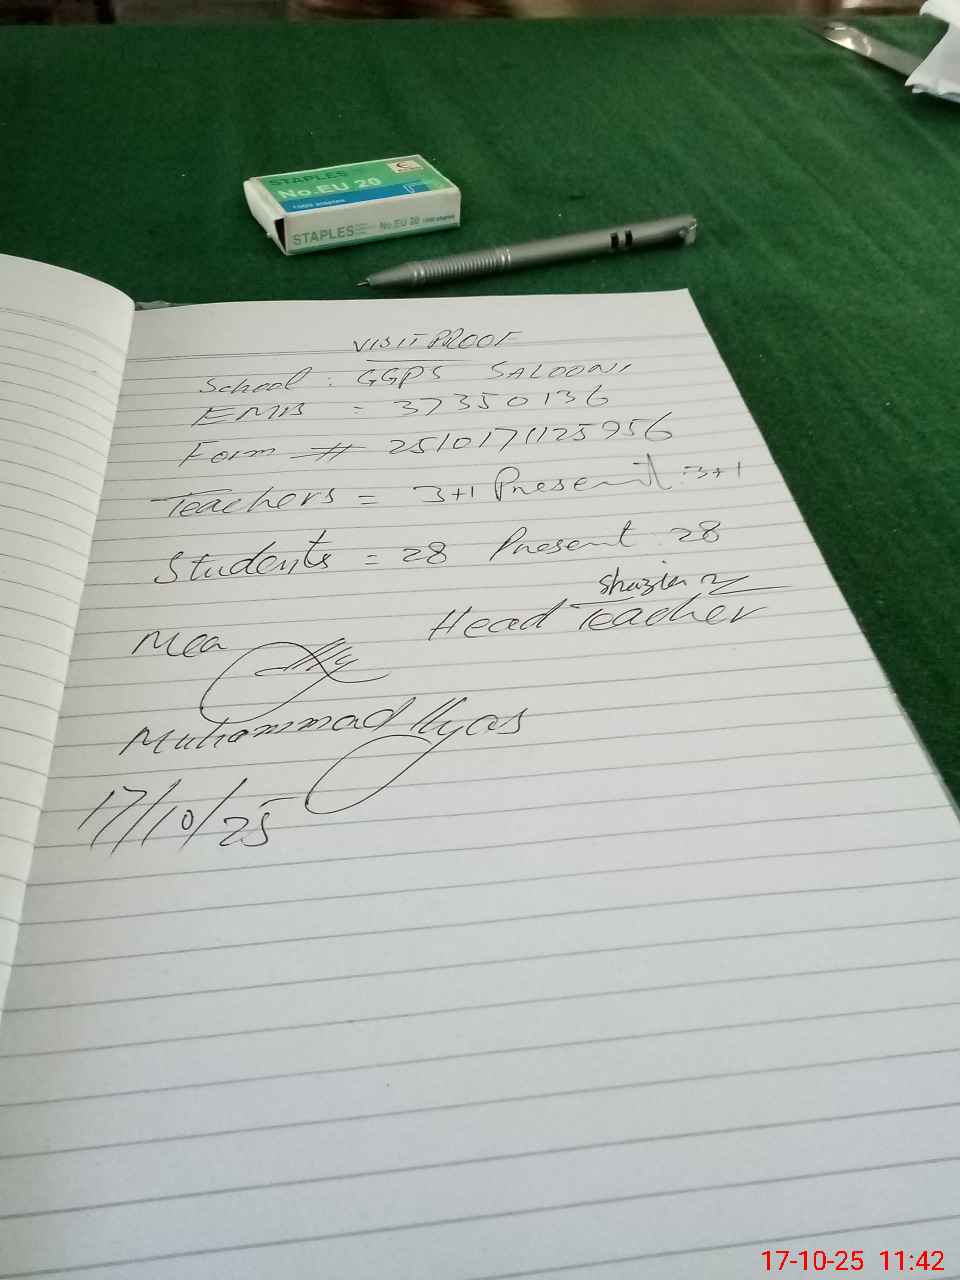 STAPLES
No.EU 20
1000 staples
STAPLES No.EU 20 1000 staples
VISIT PROOF
School : GGPS SALOONI
EMIS = 37350136
Form # 2510171125956
Teachers = 3+1 Present : 3+1
Students = 28 Present : 28
Shazia
Head Teacher
Mea
Muhammad Ilyas
17/10/25
17-10-25 11:42